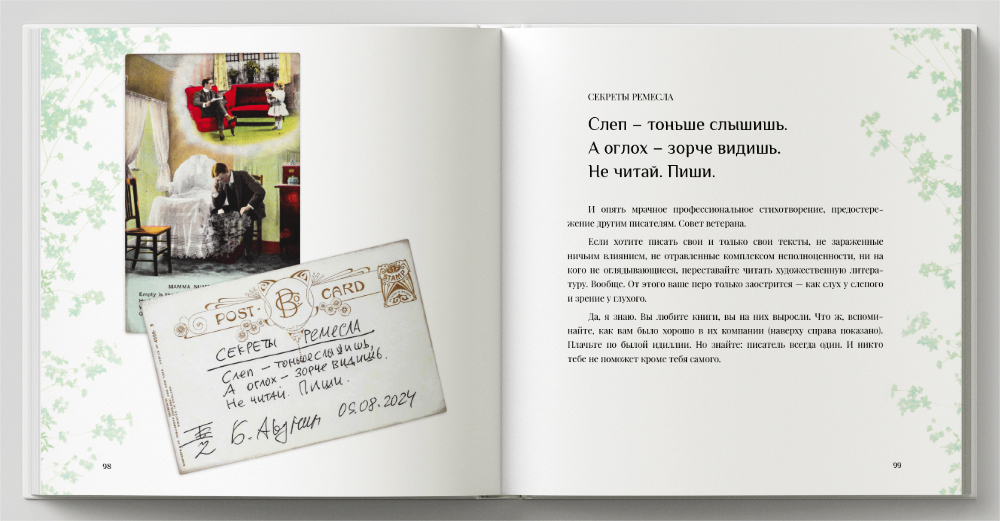 MAMMA
Empty is
POST-
CARD
B Co
STAMP
СЕКРЕТЫ РЕМЕСЛА
Слеп – тоньше слышишь,
А оглох – зорче видишь.
Не читай. Пиши.
05.08.2024
2
98
СЕКРЕТЫ РЕМЕСЛА
Слеп – тоньше слышишь.
А оглох – зорче видишь.
Не читай. Пиши.
И опять мрачное профессиональное стихотворение, предостере-
жение другим писателям. Совет ветерана.
Если хотите писать свои и только свои тексты, не зараженные
ничьим влиянием, не отравленные комплексом неполноценности, ни на
кого не оглядывающиеся, переставайте читать художественную литера-
туру. Вообще. От этого ваше перо только заострится — как слух у слепого
и зрение у глухого.
Да, я знаю. Вы любите книги, вы на них выросли. Что ж, вспоми-
найте, как вам было хорошо в их компании (наверху справа показано).
Плачьте по былой идиллии. Но знайте: писатель всегда один. И никто
тебе не поможет кроме тебя самого.
99